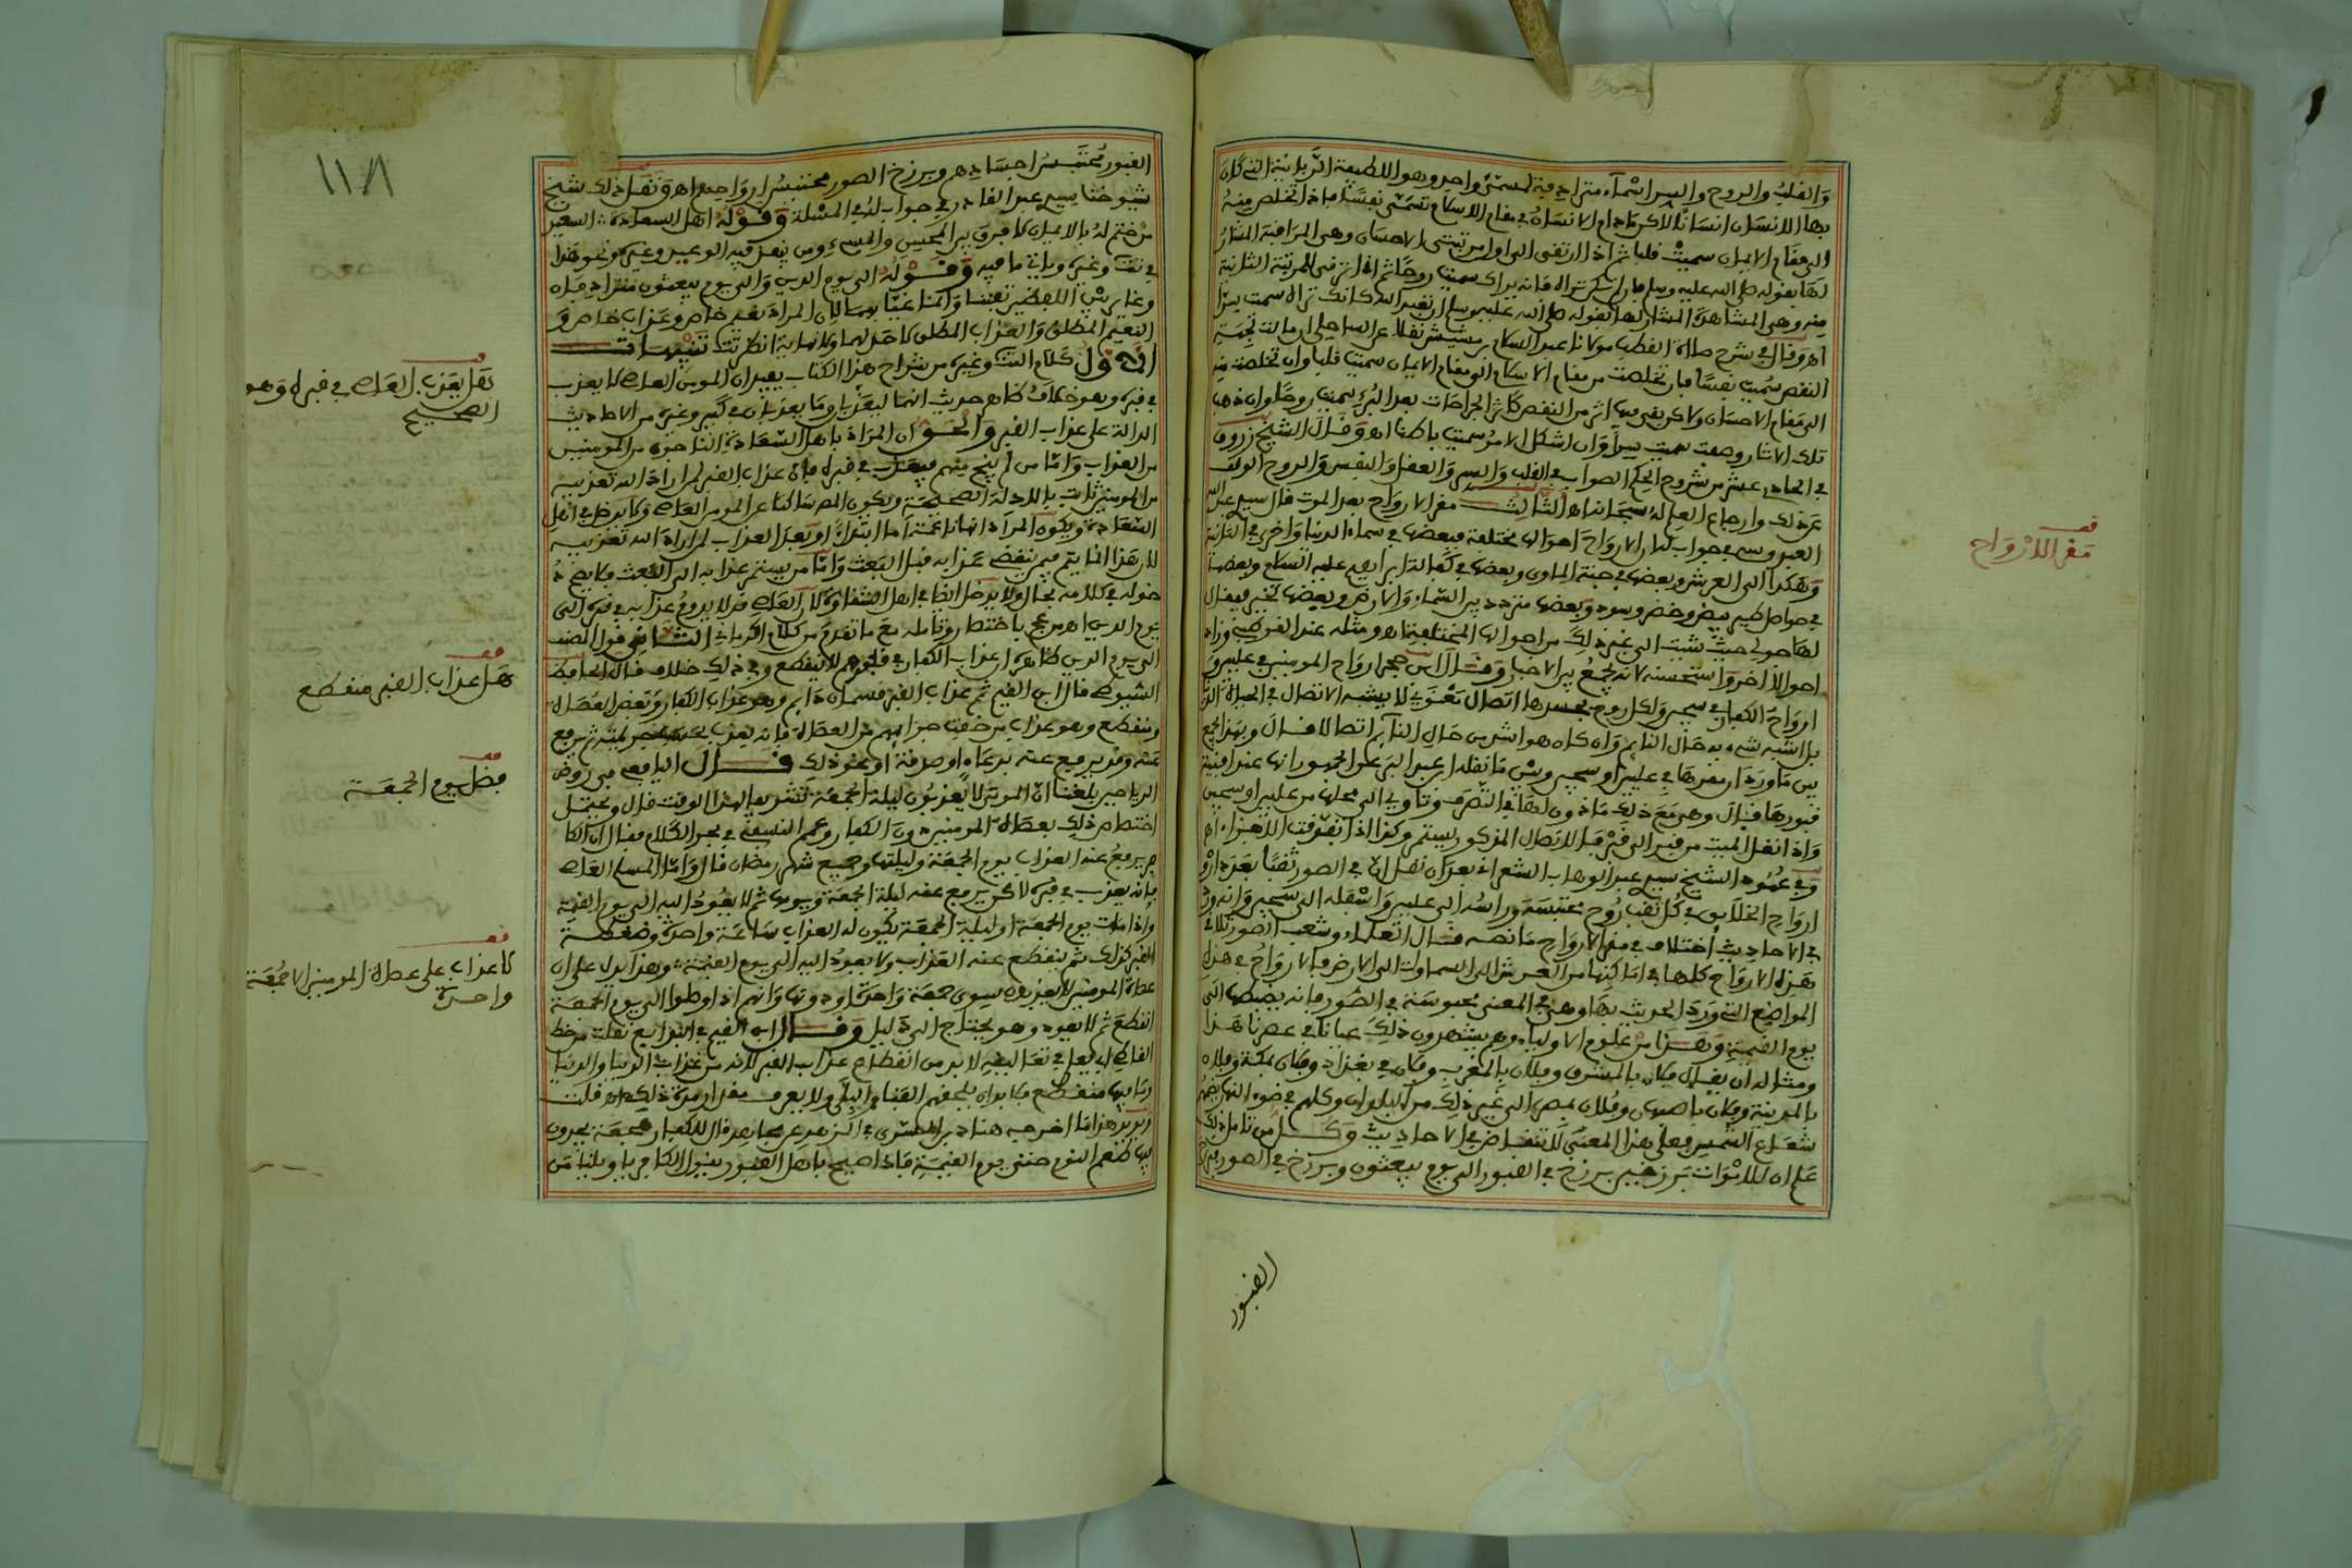 والقلب والروح والسر اسماء مترادفة لمسمى واحد وهو اللطيفة الربانية التي كان
بها الانسان انسانا لاكن مادام الانسان في مقام الاسلام تسمى نفسا فاذا تخلص منه
الى مقام الايمان سميت قلبا ثم اذا ارتقى الى اول مرتبتي الاحسان وهي المراقبة المشار
لها بقوله صلى الله عليه وسلم فان لم تكن تراه فانه يراك سميت روحا ثم اذا ترقى للمرتبة الثانية
منه وهي المشاهدة المشار لها بقوله صلى الله عليه وسلم ان تعبد الله كانك تراه سميت سرا
اه وقال في شرح صلاة القطب مولانا عبد السلام بن مشيش نقلا عن الساحلي ان مالت لجهة
النقص سميت نفسا فان تخلصت من مقام الاسلام الى مقام الايمان سميت قلبا وان تخلصت منه
الى مقام الاحسان ولاكن بقي بها اثر من النقص كاثر الجراحات بعد البرء سميت روحا وان ذهب
تلك الاثار وصفت سميت سرا وان اشكل الامر سميت باطنا اه وقال الشيخ زروق
في الحادي عشر من شروح الحكم الصواب في القلب والسر والعقل والنفس والروح الوقف
عن ذلك وارجاع العلم له سبحانه اه الثالث مقر الارواح بعد الموت قال سيدي عبد الله
العبدوسي في جواب له ان الارواح احوالها مختلفة فبعضها في سماء الدنيا واخرى في الثانية
وهكذا الى العرش وبعضها في جنة الماوى وبعضها في كفالة ابراهيم عليه السلام وبعضها
في حواصل طير بيض وخضر وسود وبعضها متردد بين السماء والارض وبعضها تخير فيقال
لها جولي حيث شئت الى غير ذلك من احوالها المختلفة اه ومثله عند القرطبي وزاد
احوالا اخر واستحسنه لانه يجمع بين الاخبار وقال ابن حجر ارواح المومنين في عليين و
ارواح الكفار في سجين ولكل روح بجسدها اتصال معنوي لا يشبه الاتصال في الحياة الدنيا
بل اشبه شيء به حال النائم وان كان هو اشد من حال النائم اتصالا قال وبهذا يجمع
بين ما ورد ان مقرها في عليين او سجين وبين ما نقله ابن عبد البر عن الجمهور انها عند افنية
قبورها قال وهي مع ذلك ماذون لها في التصرف وتاوي الى محلها من عليين او سجين
واذا نقل الميت من قبر الى قبر فالاتصال المذكور يستمر وكذا اذا تفرقت الاجزاء اه
وفي عهود الشيخ سيدي عبد الوهاب الشعراني بعد ان نقل ان في الصور ثقبا بعدد ارواح
ارواح الخلايق في كل ثقب روح محتبسة وراسه الى عليين واسفله الى سجين وانه ورد
في الاحاديث اختلاف في مقر الارواح ما نصه قال العلماء وشعب الصور تلاقي
هذه الارواح كلها في اماكنها من العرش الى السماوات الى الارض فالارواح في هذه
المواضع التي ورد الحديث بها وهي في المعنى محبوسة في الصور فانه يضبطها الى
يوم القيمة وهذا من علوم الاولياء وهم يشهدون ذلك عيانا في عصرنا هذا
ومثاله ان يقال فلان بالمشرق وفلان بالمغرب وفلان في بغداد وفلان بمكة وفلان
بالمدينة وفلان باصبهان وفلان بمصر الى غير ذلك من البلدان وكلهم في ضوء النهار يضمهم
شعاع الشمس فعلى هذا المعنى لا تناقض في الاحاديث وكل من تامل ذلك
علم ان للاموات برزخين برزخ في القبور الى يوم يبعثون وبرزخ في الصور فبرزخ
القبور
فف
مقر الارواح
القبور محتبس اجسادهم وبرزخ الصور محتبس ارواحهم اه ونقل ذلك شيخ
شيوخنا سيدي عبد القادر في جواب له في المسئلة وقوله اهل السعادة السعيد
من ختم له بالايمان لا فرق بين المحسن والمسيء ومن نفذ فيه الوعيد وغيره ونحو هذا
في تت وغيره وياتي ما فيه وقوله الى يوم الدين والى يوم يبعثون مترادفان
وغاير بين اللفظين تفننا وانما غيا بهما لان المراد نعيم خاص وعذاب خاص و
النعيم المطلق والعذاب المطلق لا حد لهما ولا نهاية انظر تت تنبيهات
الاول كلام تت وغيره من شراح هذا الكتاب يفيد ان المومن العاصي لا يعذب
في قبره وهو خلاف ظاهر حديث انهما ليعذبان وما يعذبان في كبير وغيره من الاحاديث
الدالة على عذاب القبر والحق ان المراد باهل السعادة الناجون من المومنين
من العذاب واما من لم ينج منهم فيعذب في قبره فان عذاب القبر لمن اراد الله تعذيبه
من المومنين ثابت بالادلة الصحيحة ويكون المص ساكتا عن المومن العاصي ولا يدخل في اهل
السعادة ويكون المراد انها ناعمة اما ابتداء او بعد العذاب لمن اراد الله تعذيبه
لان هذا انما يتم فيمن ينقضي عذابه قبل البعث واما من يستمر عذابه الى البعث فلا يصح د
خوله في كلامه بحال ولا يدخل ايضا في اهل الشقاوة لان العاصي قد لا يدوم عذابه في قبره الى
يوم الدين اه من عج باختصار وتامله مع ما تقدم من كلام الكرماني الثاني قول المص
الى يوم الدين ظاهره ان عذاب الكفار في قبورهم لا ينقطع وفي ذلك خلاف قال الحافظ
السيوطي قال ابن القيم ثم عذاب القبر قسمان دايم وهو عذاب الكفار وبعض العصاة
ومنقطع وهو عذاب من خفت جرايمهم من العصاة فانه يعذب بحسب جريمته ثم يرفع
عنه وقد يرفع عنه بدعاء او صدقة او نحو ذلك قال اليافعي في روض
الرياحين بلغنا ان الموتى لا يعذبون ليلة الجمعة تشريفا لهذا الوقت قال ويحتمل
اختصاص ذلك بعصاة المومنين دون الكفار وعمم النسفي في بحر الكلام فقال ان الكا
فر يرفع عنه العذاب يوم الجمعة وليلتها وجميع شهر رمضان قال واما المسلم العاصي
فانه يعذب في قبره لاكن يرفع عنه ليلة الجمعة ويومها ثم لا يعود اليه الى يوم القيمة
واذا مات يوم الجمعة او ليلة الجمعة يكون له العذاب ساعة واحدة وضغطة
القبر كذلك ثم ينقطع عنه العذاب ولا يعود اليه الى يوم القيمة وهذا يدل على ان
عصاة المومنين لا يعذبون سوى جمعة واحدة او دونها وانهم اذا وصلوا الى يوم الجمعة
انقطع ثم لا يعود وهو يحتاج الى دليل وقال ابن القيم في البدايع نقلت من خط
القاضي ابي يعلى في تعاليقه لا بد من انقطاع عذاب القبر لانه من عذاب الدنيا والدنيا
وما فيها منقطع فلا بد ان يلحقهم الفناء والبلى ولا يعرف مقدار مدة ذلك اه قلت
ويويد هذا ما اخرجه هناد بن السري في الزهد عن مجاهد قال للكفار هجعة يجدون
فيها طعم النوم حتى يوم القيمة فاذا صيح باهل القبور يقول الكافر ياويلنا من
١١٨
فف
نقل يعذب العاصي في قبره وهو
الصحيح
فف
هل عذاب القبر منقطع
فف
فضل يوم الجمعة
فف
لا عذاب على عصاة المومنين الا جمعة
واحدة